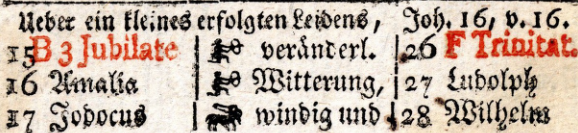 Ueber ein kleines erfolgten Leidens, Joh. 16, v. 16.
15 B 3 Jubilate veränderl. 26 F Trinitat.
16 Amalia Witterung, 27 Ludolph
17 Jodocus windig und 28 Wilhelm